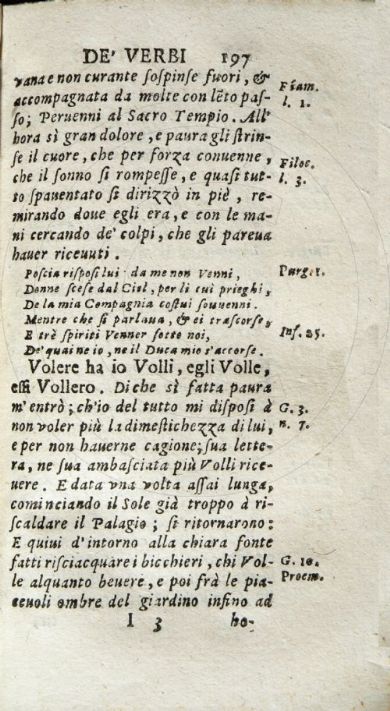 DE' VERBI 197
vana e non curante ſoſpinſe fuori, &
accompagnata da molte con lẽto paſ-
ſo; Peruenni al Sacro Tempio. All'
hora sì gran dolore, e paura gli ſtrin-
ſe il cuore, che per forza conuenne,
che il ſonno ſi rompeſſe, e quaſi tut-
to ſpauentato ſi dirizzò in piè, re-
mirando doue egli era, e con le ma-
ni cercando de' colpi, che gli pareua
hauer riceuuti.
Fiam.
l. 1.
Filoc.
l. 3.
Poſcia riſpoſi lui: da me non Venni,
Donne ſceſe dal Ciel, per li cui prieghi,
De la mia Compagnia coſtui ſouuenni.
Mentre che ſi parlaua, & ei traſcorſe,
E trè ſpiriti Venner ſotto noi,
De' quai ne io, ne il Duca mio s'accorſe.
Purger.
Inf. 25.
Volere ha io Volli, egli Volle,
eſſi Vollero. Di che sì fatta paura
m'entrò; ch'io del tutto mi diſpoſi à
non voler più la dimeſtichezza di lui,
e per non hauerne cagione; ſua lette-
ra, ne ſua ambaſciata più Volli rice-
uere. E data vna volta aſſai lunga,
cominciando il Sole già troppo à ri-
ſcaldare il Palagio; ſi ritornarono:
E quiui d'intorno alla chiara fonte
fatti riſciacquare i bicchieri, chi Vol-
le alquanto beuere, e poi frà le pia-
ceuoli ombre del giardino infino ad
G. 3.
n. 7.
G. 10.
Proem.
I 3 ho-